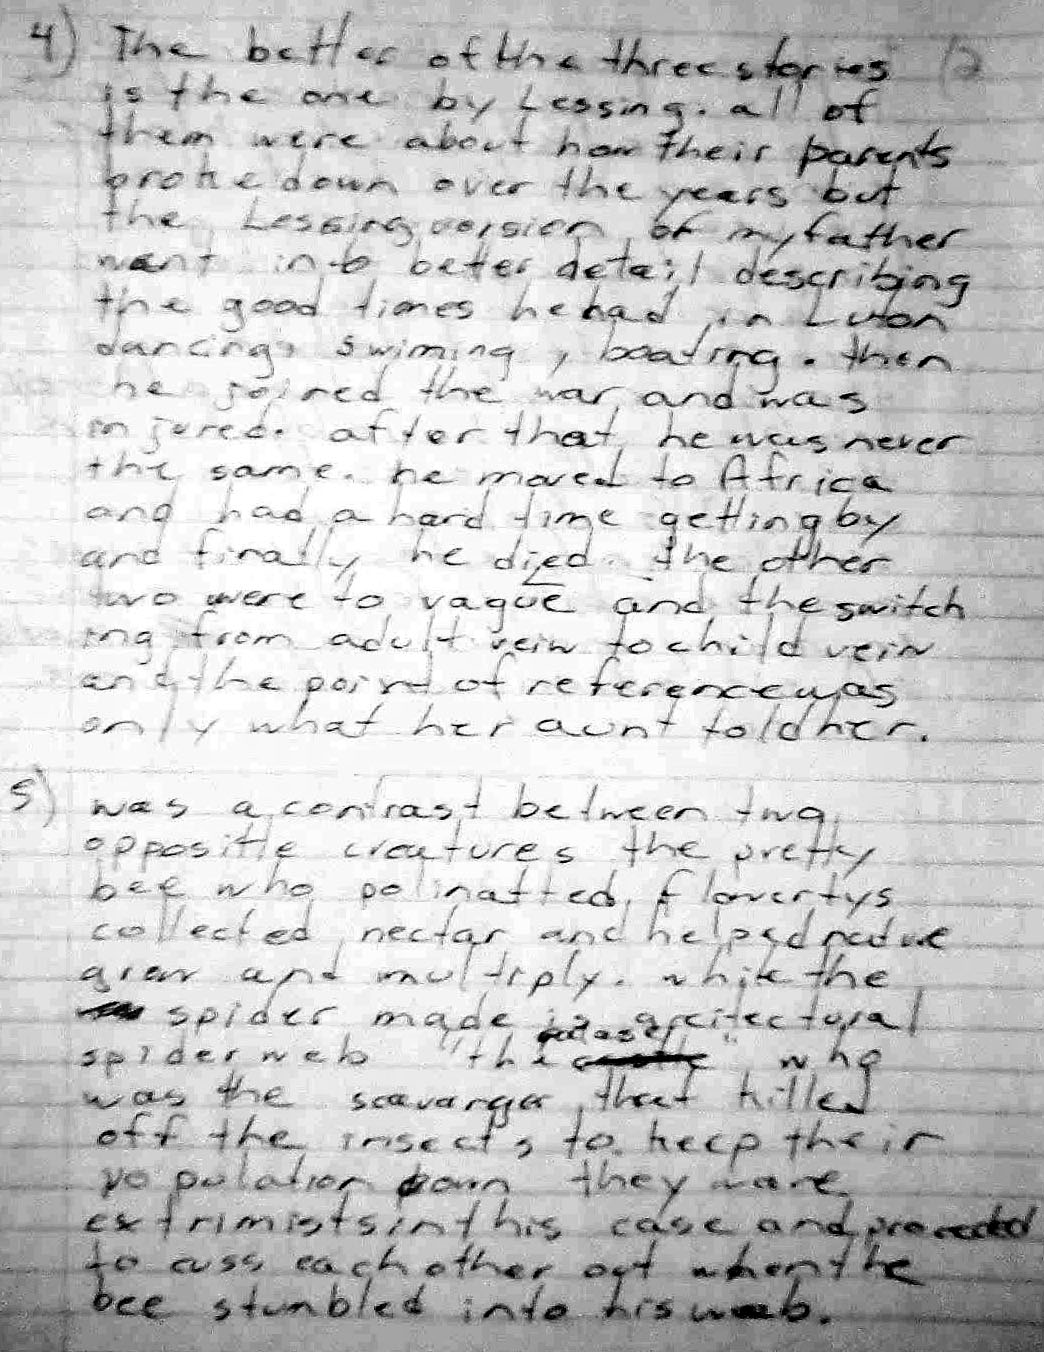 4) The better of the three stories 12
is the one by Lessing. all of
them were about how their parents
broke down over the years but
the Lessing version of my father
went into better detail describing
the good times he had in Luton
dancing, swiming, boating. then
he joined the war and was
injured. after that he was never
the same. he moved to Africa
and had a hard time getting by
and finally he died. the other
two were to vague and the switch
ing from adult veiw to child veiw
and the point of reference was
only what her aunt told her.
5) was a contrast between two
oppositie creatures the pretty
bee who polinatted
collected nectar and helped nature
grow and multiply. while the
spider made arcitectural
spider web "the palace" who
was the scavanger that killed
off the insects to keep their
population down they were
extrimists in this case and proceeded
to cuss each other out when the
bee stumbled into his web.